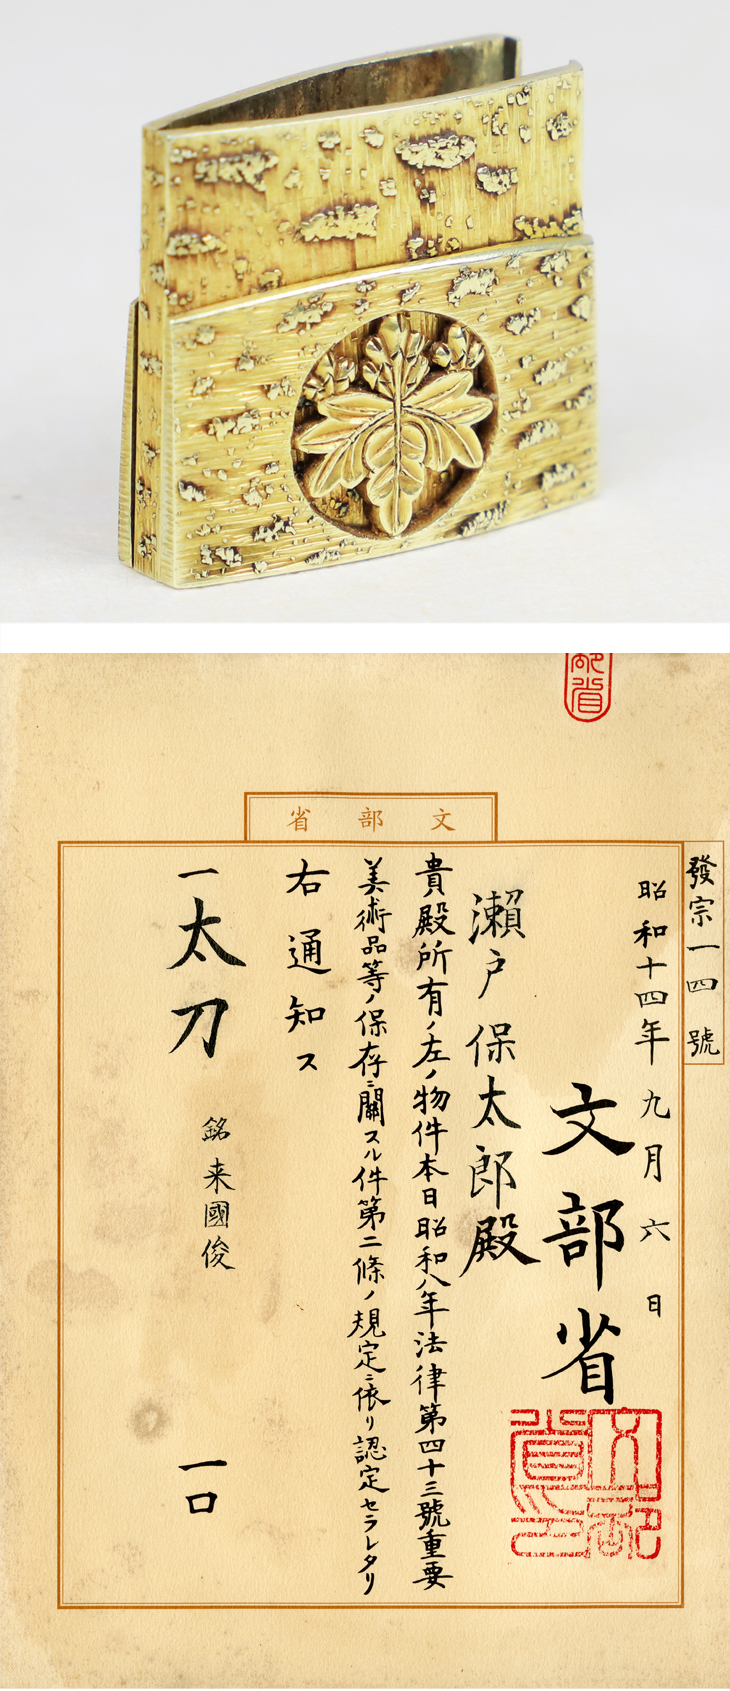 部省
文部省
發宗一四號
昭和十四年九月六日
文部省
瀨戶保太郎殿
貴殿所有ノ左ノ物件本日昭和八年法律第四十三號重要
美術品等ノ保存ニ關スル件第二條ノ規定ニ依リ認定セラレタリ
右通知ス
一太刀 銘来國俊 一口
文部省印